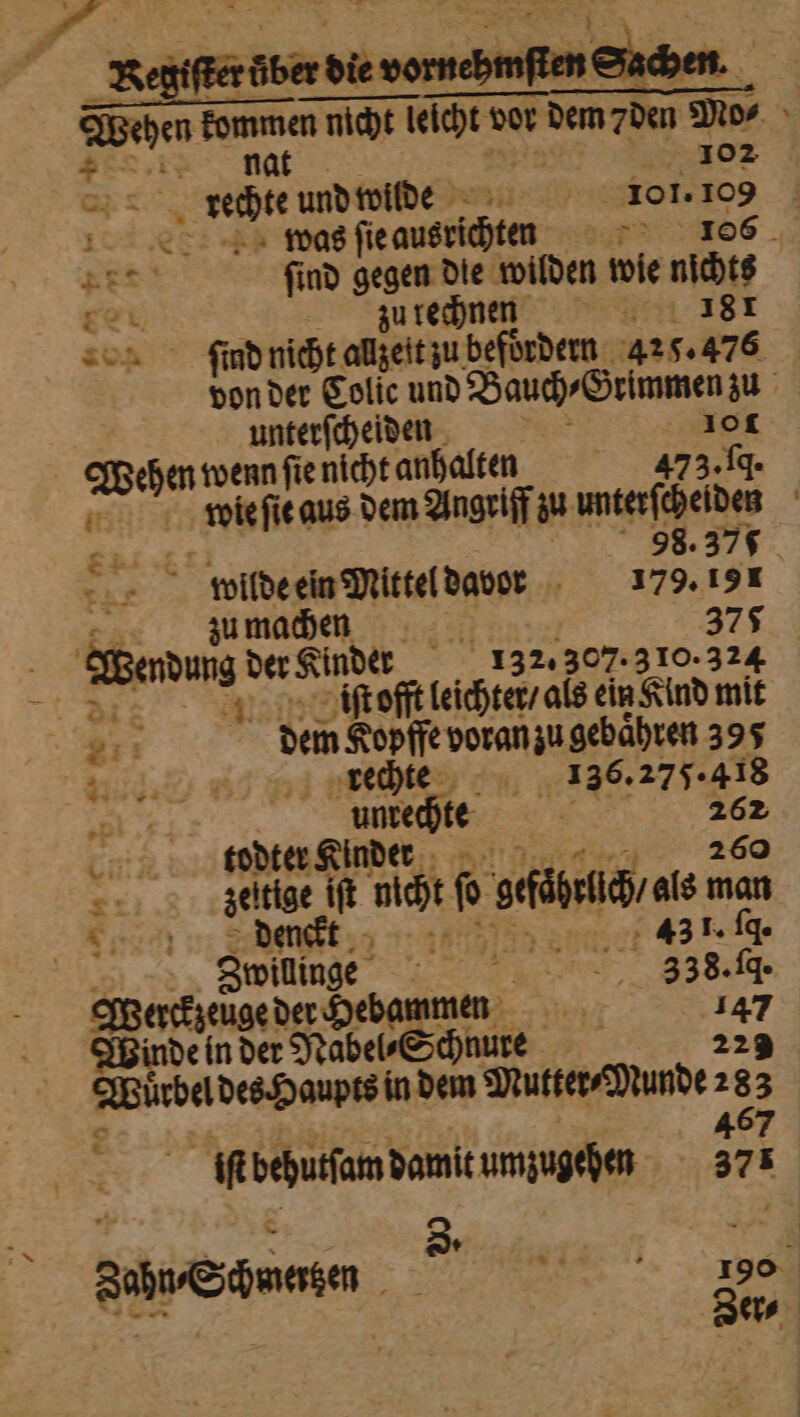 Regiſter uͤber die vornehmſten Sachen.
Wehen kommen nicht leicht vor dem 7den Mo⸗
nat 102
rechte und wilde 101. 109
was ſie ausrichten 106
ſind gegen die wilden wie nichts
zu rechnen 181
ſind nicht allzeit zu befoͤrdern 425. 476
von der Colic und Bauch⸗Grimmen zu
unterſcheiden 101
Wehen wenn ſie nicht anhalten 473. ſq.
wie ſie aus dem Angriff zu unterſcheiden
98. 375
wilde ein Mittel davor 179. 191
zu machen 375
Wendung der Kinder 132. 307. 310. 324
iſt offt leichter/ als ein Kind mit
dem Kopffe voran zu gebaͤhren 395
rechte 136. 275. 418
unrechte 262
todter Kinder 260
zeitige iſt nicht ſo gefaͤhrlich/ als man
denckt 431. ſq.
Zwillinge 338. ſq.
Werckzeuge der Hebammen 147
Winde in der Nabel⸗Schnure 229
Wuͤrbel des Haupts in dem Mutter⸗Munde 283
467
iſt behutſam damit umzugehen 371
Z.
Zahn⸗Schmertzen 190
Zer⸗